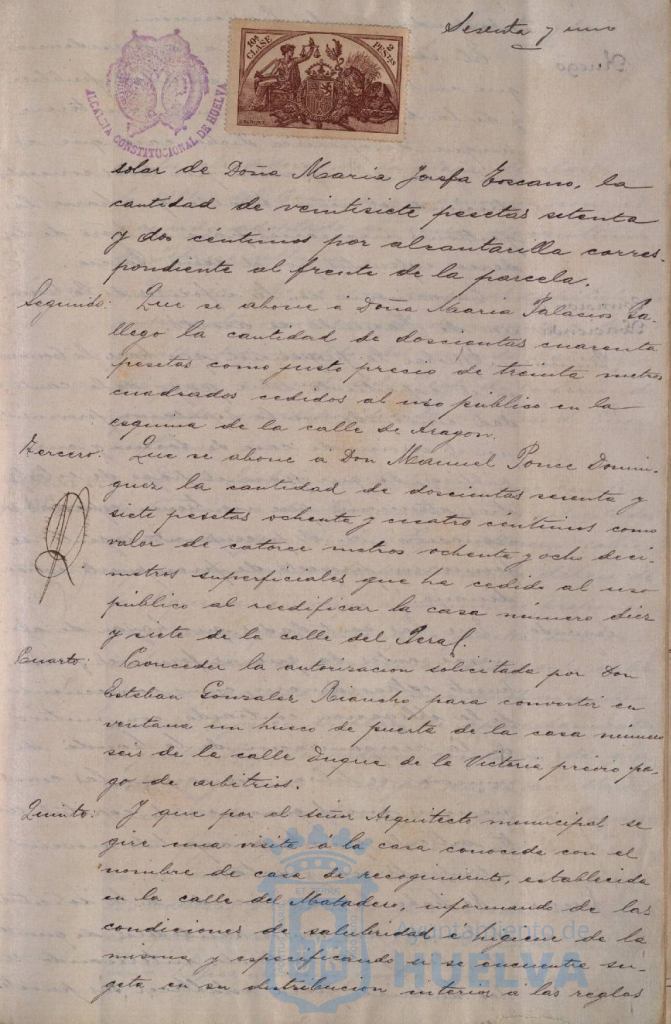 Sesenta y uno
ALCALDIA CONSTITUCIONAL DE HUELVA
10ª CLASE
2 PESETAS
solar de Doña Maria Josefa Toscano, la
cantidad de veintisiete pesetas setenta
y dos céntimos por alcantarilla corres-
pondiente al frente de la parcela.
Segundo: Que se abone á Doña Maria Palacios Ga-
llego la cantidad de doscientas cuarenta
pesetas como justo precio de treinta metros
cuadrados cedidos al uso público en la
esquina de la calle de Aragon.
Tercero: Que se abone á Don Manuel Ponce Domin-
guez la cantidad de doscientas sesenta y
siete pesetas ochenta y cuatro céntimos como
valor de catorce metros ochenta y ocho decí-
metros superficiales que ha cedido al uso
público al reedificar la casa número diez
y siete de la calle del Peral.
Cuarto: Conceder la autorizacion solicitada por Don
Esteban Gonzalez Riancho para convertir en
ventana un hueco de puerta de la casa número
seis de la calle Duque de la Victoria previo pa-
go de arbitrios.
Quinto: Y que por el señor Arquitecto municipal se
gire una visita á la casa conocida con el
nombre de casa de recogimiento, establecida
en la calle del Matadero, informando de las
condiciones de salubridad é higiene de la
misma y especificando si se encuentra su-
geta en su distribucion interior á las reglas
Ayuntamiento de
HUELVA